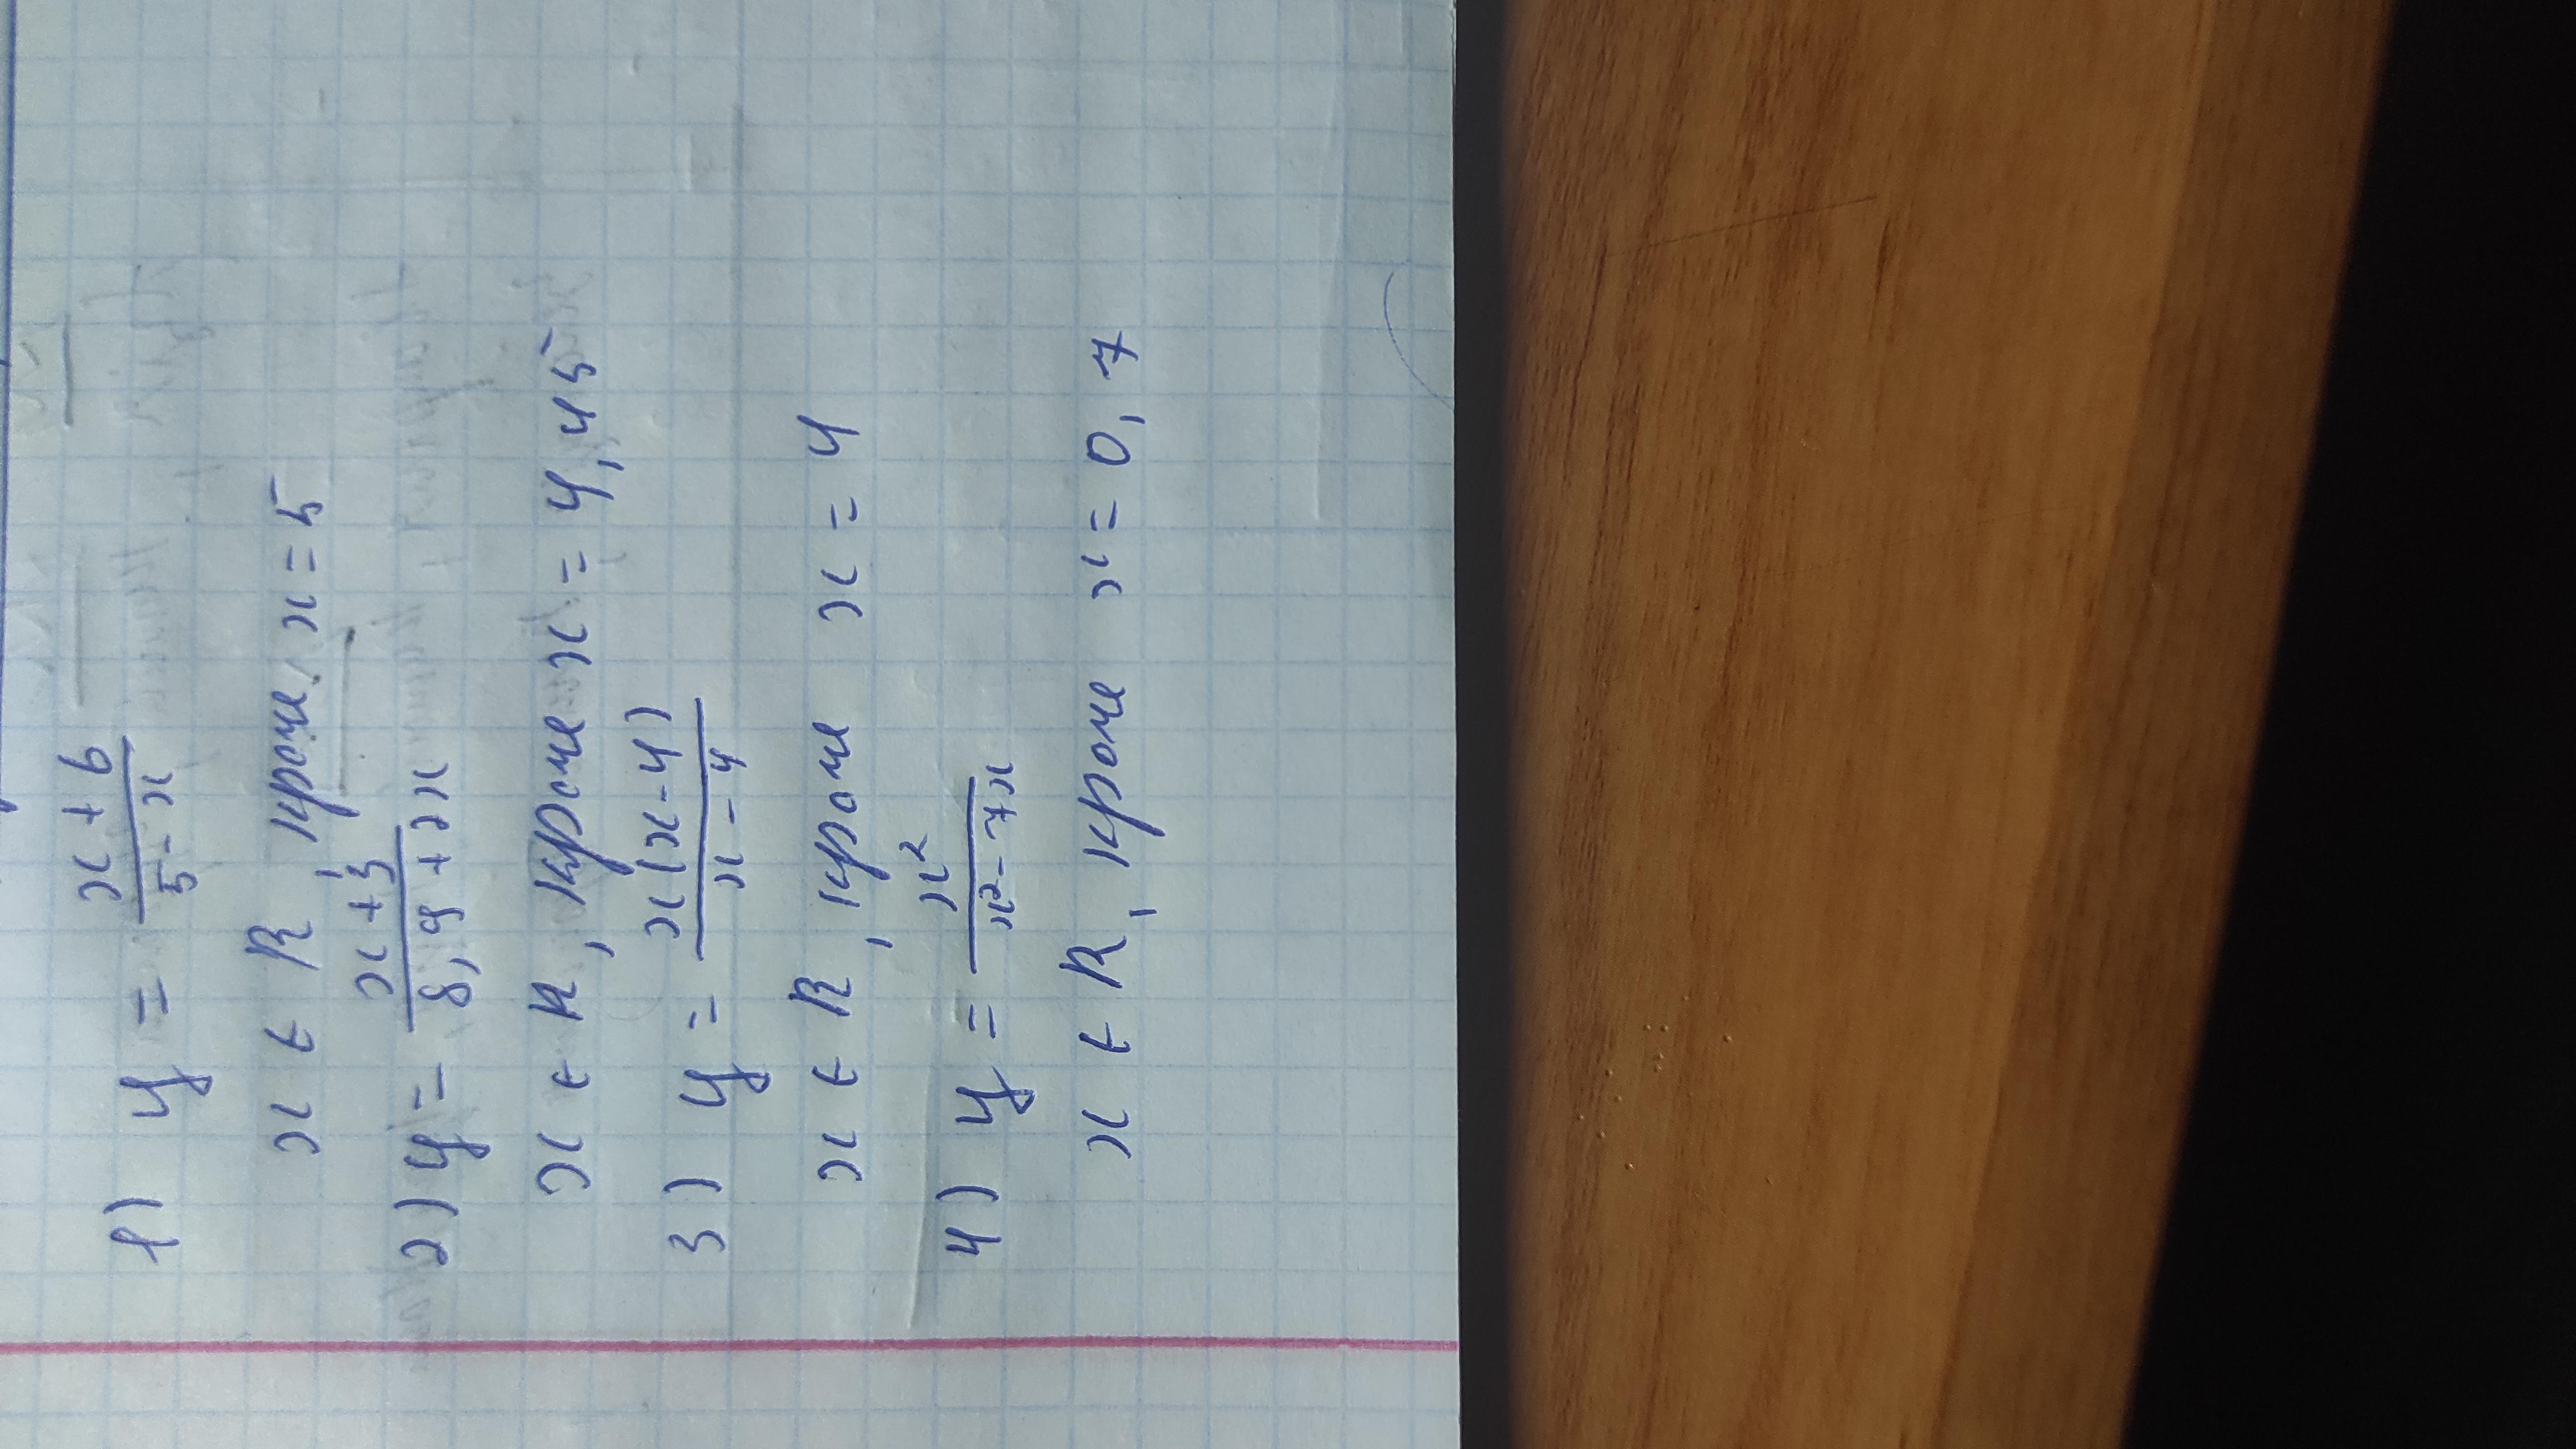 1) y = (x + 6)/(5 - x)
x ∈ R, кроме x = 5
2) y = (x + 1/3)/(8,9 + 2x)
x ∈ R, кроме x = 4,45
3) y = x(x - 4)/(x - 4)
x ∈ R, кроме x = 4
4) y = x²/(x² - 7x)
x ∈ R, кроме x = 0, 7